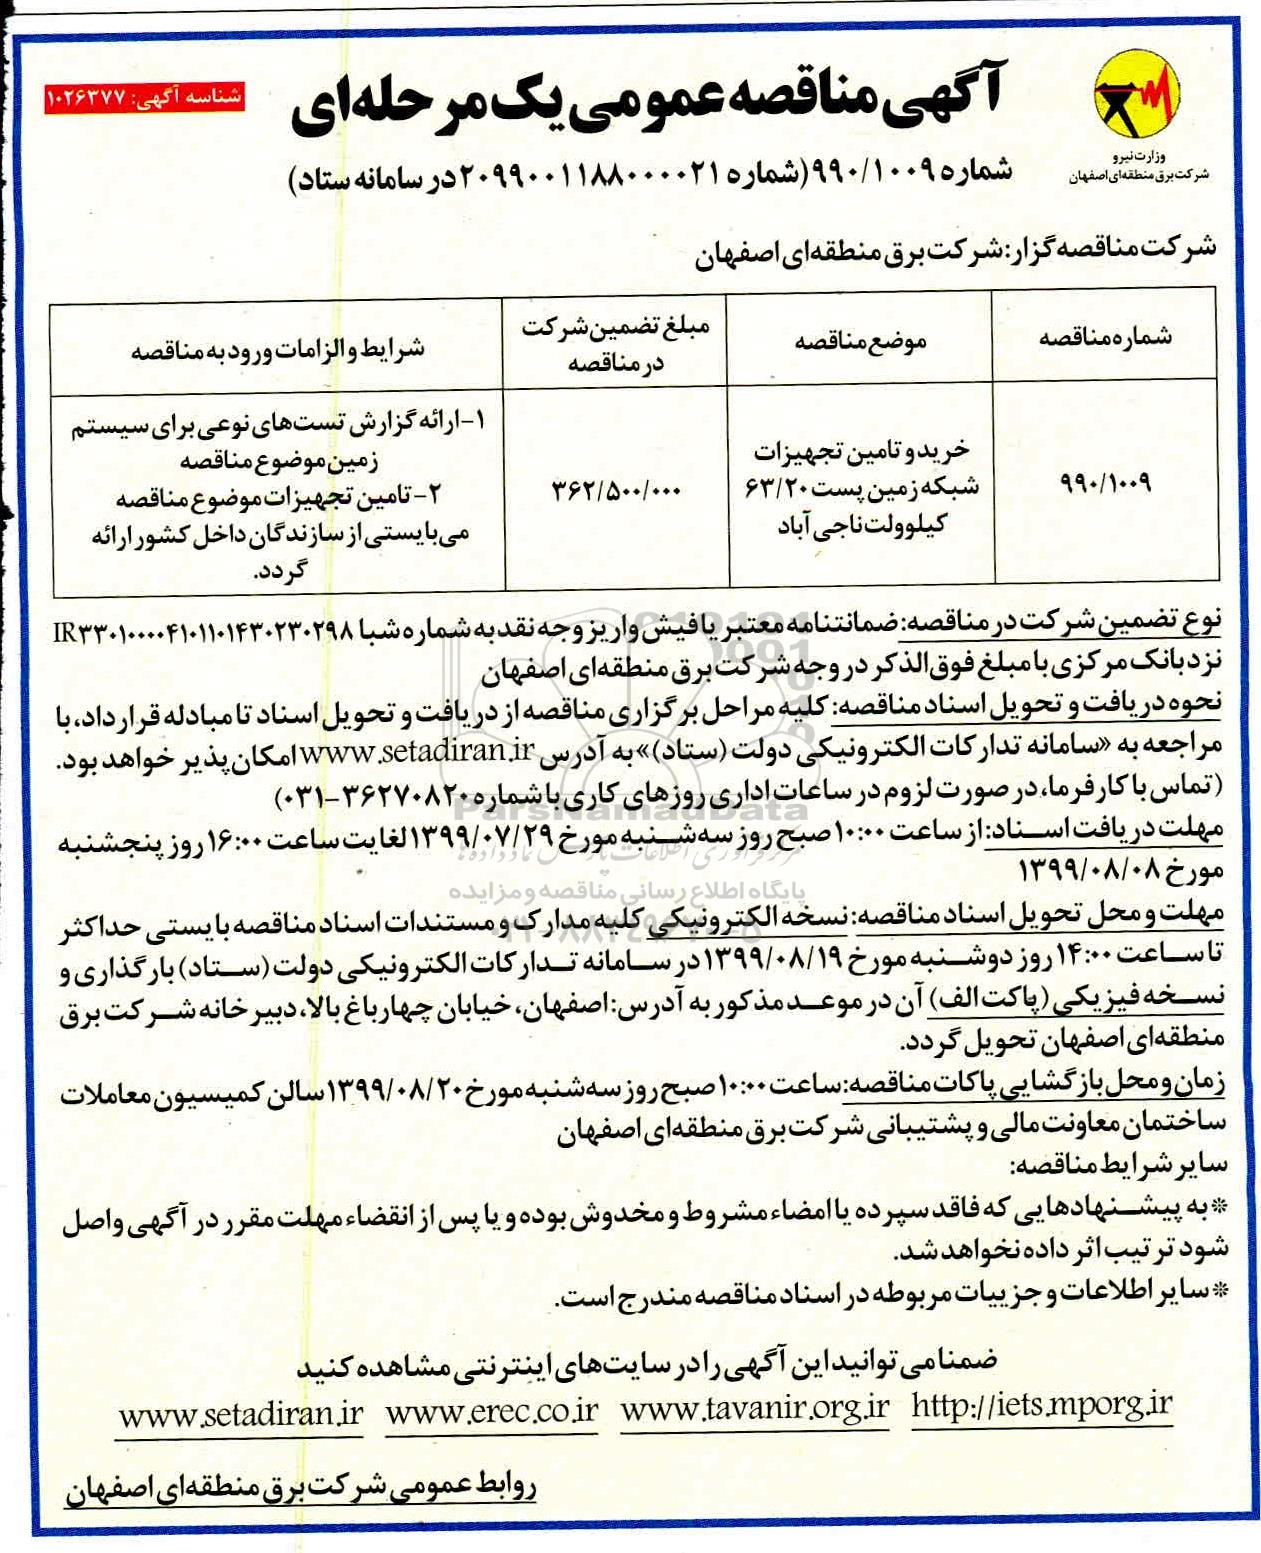 آگهی مناقصه عمومی یک مرحله‌ای
شناسه آگهی: ۱۰۲۶۳۷۷
وزارت نیرو
شرکت برق منطقه‌ای اصفهان
شماره ۹۹۰/۱۰۰۹ (شماره ۲۰۹۹۰۰۱۱۸۸۰۰۰۰۲۱ در سامانه ستاد)
شرکت مناقصه گزار: شرکت برق منطقه‌ای اصفهان
شماره مناقصه
موضع مناقصه
مبلغ تضمین شرکت
در مناقصه
شرایط و الزامات ورود به مناقصه
۹۹۰/۱۰۰۹
خرید و تامین تجهیزات
شبکه زمین پست ۶۳/۲۰
کیلوولت ناجی آباد
۳۶۲/۵۰۰/۰۰۰
۱- ارائه گزارش تست‌های نوعی برای سیستم
زمین موضوع مناقصه
۲- تامین تجهیزات موضوع مناقصه
می‌بایستی از سازندگان داخل کشور ارائه
گردد.
نوع تضمین شرکت در مناقصه: ضمانتنامه معتبر یا فیش واریز وجه نقد به شماره شبا IR۳۳۰۱۰۰۰۰۴۱۰۱۱۰۱۴۳۰۲۳۰۲۹۸
نزد بانک مرکزی با مبلغ فوق الذکر در وجه شرکت برق منطقه‌ای اصفهان
نحوه دریافت و تحویل اسناد مناقصه: کلیه مراحل برگزاری مناقصه از دریافت و تحویل اسناد تا مبادله قرارداد، با
مراجعه به «سامانه تدارکات الکترونیکی دولت (ستاد)» به آدرس www.setadiran.ir امکان پذیر خواهد بود.
(تماس با کارفرما، در صورت لزوم در ساعات اداری روزهای کاری با شماره ۳۶۲۷۰۸۲۰-۰۳۱)
مهلت دریافت اسناد: از ساعت ۱۰:۰۰ صبح روز سه شنبه مورخ ۱۳۹۹/۰۷/۲۹ لغایت ساعت ۱۶:۰۰ روز پنجشنبه
مورخ ۱۳۹۹/۰۸/۰۸
مهلت و محل تحویل اسناد مناقصه: نسخه الکترونیکی کلیه مدارک و مستندات اسناد مناقصه بایستی حداکثر
تا ساعت ۱۴:۰۰ روز دوشنبه مورخ ۱۳۹۹/۰۸/۱۹ در سامانه تدارکات الکترونیکی دولت (ستاد) بارگذاری و
نسخه فیزیکی (پاکت الف) آن در موعد مذکور به آدرس: اصفهان، خیابان چهارباغ بالا، دبیرخانه شرکت برق
منطقه‌ای اصفهان تحویل گردد.
زمان و محل بازگشایی پاکات مناقصه: ساعت ۱۰:۰۰ صبح روز سه شنبه مورخ ۱۳۹۹/۰۸/۲۰ سالن کمیسیون معاملات
ساختمان معاونت مالی و پشتیبانی شرکت برق منطقه‌ای اصفهان
سایر شرایط مناقصه:
* به پیشنهادهایی که فاقد سپرده یا امضاء مشروط و مخدوش بوده و یا پس از انقضاء مهلت مقرر در آگهی واصل
شود ترتیب اثر داده نخواهد شد.
* سایر اطلاعات و جزییات مربوطه در اسناد مناقصه مندرج است.
ضمنا می توانید این آگهی را در سایت‌های اینترنتی مشاهده کنید
http://iets.mporg.ir www.tavanir.org.ir www.erec.co.ir www.setadiran.ir
روابط عمومی شرکت برق منطقه‌ای اصفهان
ParsNamadData
پایگاه اطلاع رسانی مناقصه و مزایده